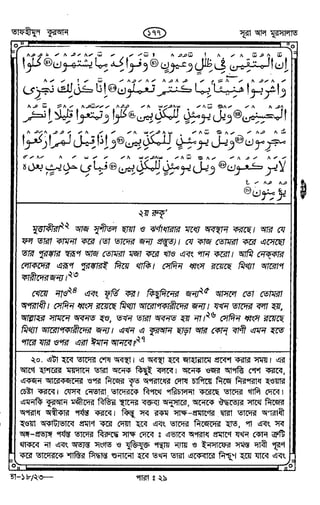 তাফহীমুল কুরআন
১৭৭
সূরা আল মুরসালাত
إِنَّ الْمُتَّقِينَ فِي ظِلَالٍ وَعُيُونٍ ﴿٤١﴾ وَفَوَاكِهَ مِمَّا يَشْتَهُونَ ﴿٤٢﴾ كُلُوا
وَاشْرَبُوا هَنِيئًا بِمَا كُنْتُمْ تَعْمَلُونَ ﴿٤٣﴾ إِنَّا كَذَلِكَ نَجْزِي
الْمُحْسِنِينَ ﴿٤٤﴾ وَيْلٌ يَوْمَئِذٍ لِلْمُكَذِّبِينَ ﴿٤٥﴾ كُلُوا وَتَمَتَّعُوا قَلِيلًا إِنَّكُمْ
مُجْرِمُونَ ﴿٤٦﴾ وَيْلٌ يَوْمَئِذٍ لِلْمُكَذِّبِينَ ﴿٤٧﴾ وَإِذَا قِيلَ لَهُمُ ارْكَعُوا
لَا يَرْكَعُونَ ﴿٤٨﴾ وَيْلٌ يَوْمَئِذٍ لِلْمُكَذِّبِينَ ﴿٤٩﴾ فَبِأَيِّ حَدِيثٍ بَعْدَهُ
يُؤْمِنُونَ ﴿٥٠﴾
২য় রুকূ'
মুত্তাকীরা২২ আজ সুশীতল ছায়া ও ঝর্ণাধারার মধ্যে অবস্থান করছে। আর যে
ফল তারা কামনা করে (তা তাদের জন্য প্রস্তুত)। যে কাজ তোমরা করে এসেছো
তার পুরস্কার স্বরূপ আজ তোমরা মজা করে খাও এবং পান করো। আমি নেককার
লোকদের এরূপ পুরস্কারই দিয়ে থাকি। সেদিন ধ্বংস রয়েছে মিথ্যা আরোপ
কারীদের জন্য।২৩
খেয়ে নাও২৪ এবং ফূর্তি কর। কিছুদিনের জন্য২৫ আসলে তো তোমরা
অপরাধী। সেদিন ধ্বংস রয়েছে মিথ্যা আরোপকারীদের জন্য। যখন তাদের বলা হয়,
আল্লাহর সামনে অবনত হও, তখন তারা অবনত হয় না।২৬ সেদিন ধ্বংস রয়েছে
মিথ্যা আরোপকারীদের জন্য। এখন এ কুরআন ছাড়া আর কোন বাণী এমন হতে
পারে যার ওপর এরা ঈমান আনবে?২৭
২০. এটা হবে তাদের শেষ অবস্থা। এ অবস্থা হবে জাহান্নামে প্রবেশ করার সময়। এর
আগে হাশরের ময়দানে তারা অনেক কিছুই বলবে। অনেক ওজর আপত্তি পেশ করবে,
একজন আরেকজনের ওপর নিজের কৃত অপরাধের দোষ চাপিয়ে নিজে নিরপরাধ হওয়ার
চেষ্টা করবে। যেসব নেতারা তাদেরকে বিপথে পরিচালনা করেছে তাদের গালি দেবে।
এমনকি কুরআন মজীদের বিভিন্ন স্থানের বক্তব্য অনুসারে, অনেকে ঔদ্ধত্যের সাথে নিজের
অপরাধ অস্বীকার পর্যন্ত করবে। কিন্তু সব রকম সাক্ষ্য-প্রমাণের দ্বারা তাদের অপরাধী
হওয়া অকাট্যভাবে প্রমাণ করে দেয়া হবে এবং তাদের নিজেদের হাত, পা এবং সব
অঙ্গ-প্রত্যঙ্গ পর্যন্ত তাদের বিরুদ্ধে সাক্ষ্য দেবে। এভাবে অপরাধ প্রমাণে যখন কোন ত্রুটি
থাকবে না এবং অত্যন্ত সংগত ও যুক্তিযুক্ত পন্থায় ন্যায় ও ইনসাফের সমস্ত দাবী পূরণ
করে তাদেরকে শাস্তির সিদ্ধান্ত শুনানো হবে তখন তারা একেবারে নিশ্চুপ হয়ে যাবে এবং
তা-১৮/২৩—
পারা ঃ ২৯